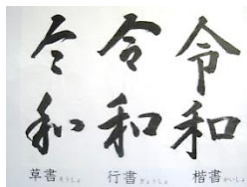 令 令 令
和 和 和
草書そうしょ 行書ぎょうしょ 楷書かいしょ